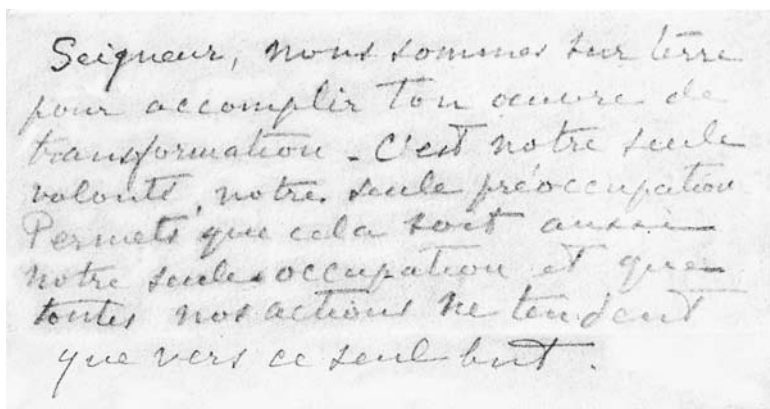 Seigneur, nous sommes sur terre
pour accomplir Ton œuvre de
transformation - C'est notre seule
volonté, notre seule préoccupation
Permets que cela soit aussi
notre seule occupation et que
toutes nos actions ne tendent
que vers ce seul but.